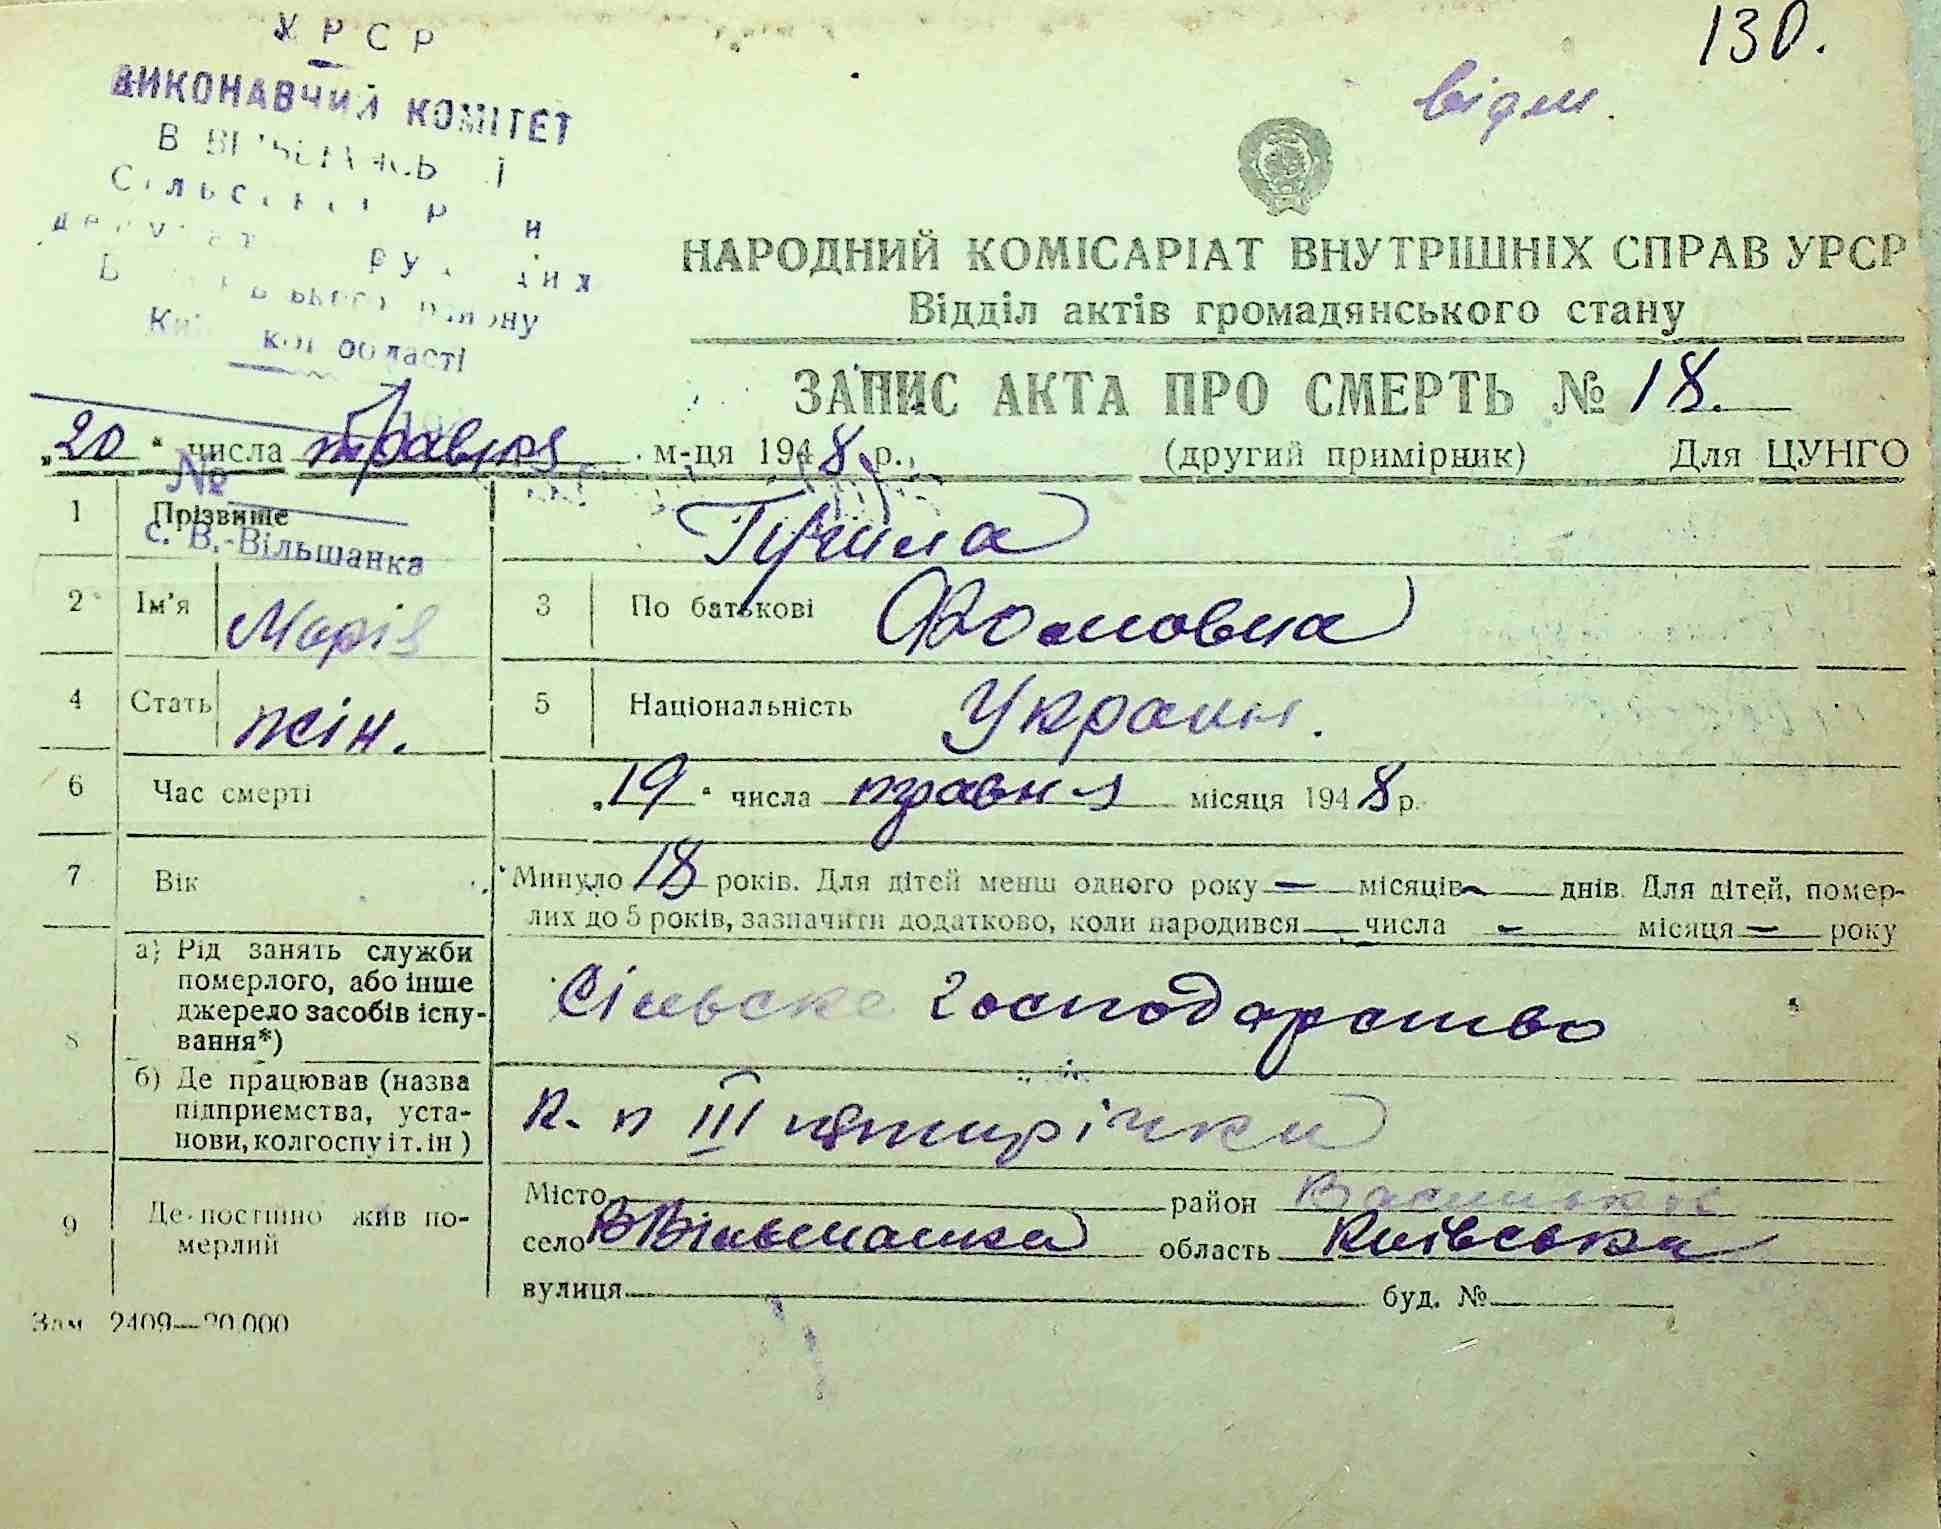 УРСР
130.
ВИКОНАВЧИЙ КОМІТЕТ
відм.
області
НАРОДНИЙ КОМІСАРІАТ ВНУТРІШНІХ СПРАВ УРСР
Відділ актів громадянського стану
ЗАПИС АКТА ПРО СМЕРТЬ № 18.
„20“ числа травня м-ця 1948 р.
(другий примірник) Для ЦУНГО
№
1 Прізвище
с. В.-Вільшанка
2 Ім'я Марія 3 По батькові
4 Стать жін. 5 Національність Україн.
6 Час смерті „19“ числа травня місяця 1948 р.
7 Вік Минуло 18 років. Для дітей менш одного року — місяців — днів. Для дітей, помер-
лих до 5 років, зазначити додатково, коли народився — числа — місяця — року
8 а) Рід занять служби
померлого, або інше
джерело засобів існу-
вання*)
Сільське господарство
б) Де працював (назва
підприємства, уста-
нови, колгоспу і т. ін)
К. п III пятирічки
9 Де постійно жив по-
мерлий
Місто район
село В Вільшанка область Київська
вулиця буд. №
Зам 2409—20.000